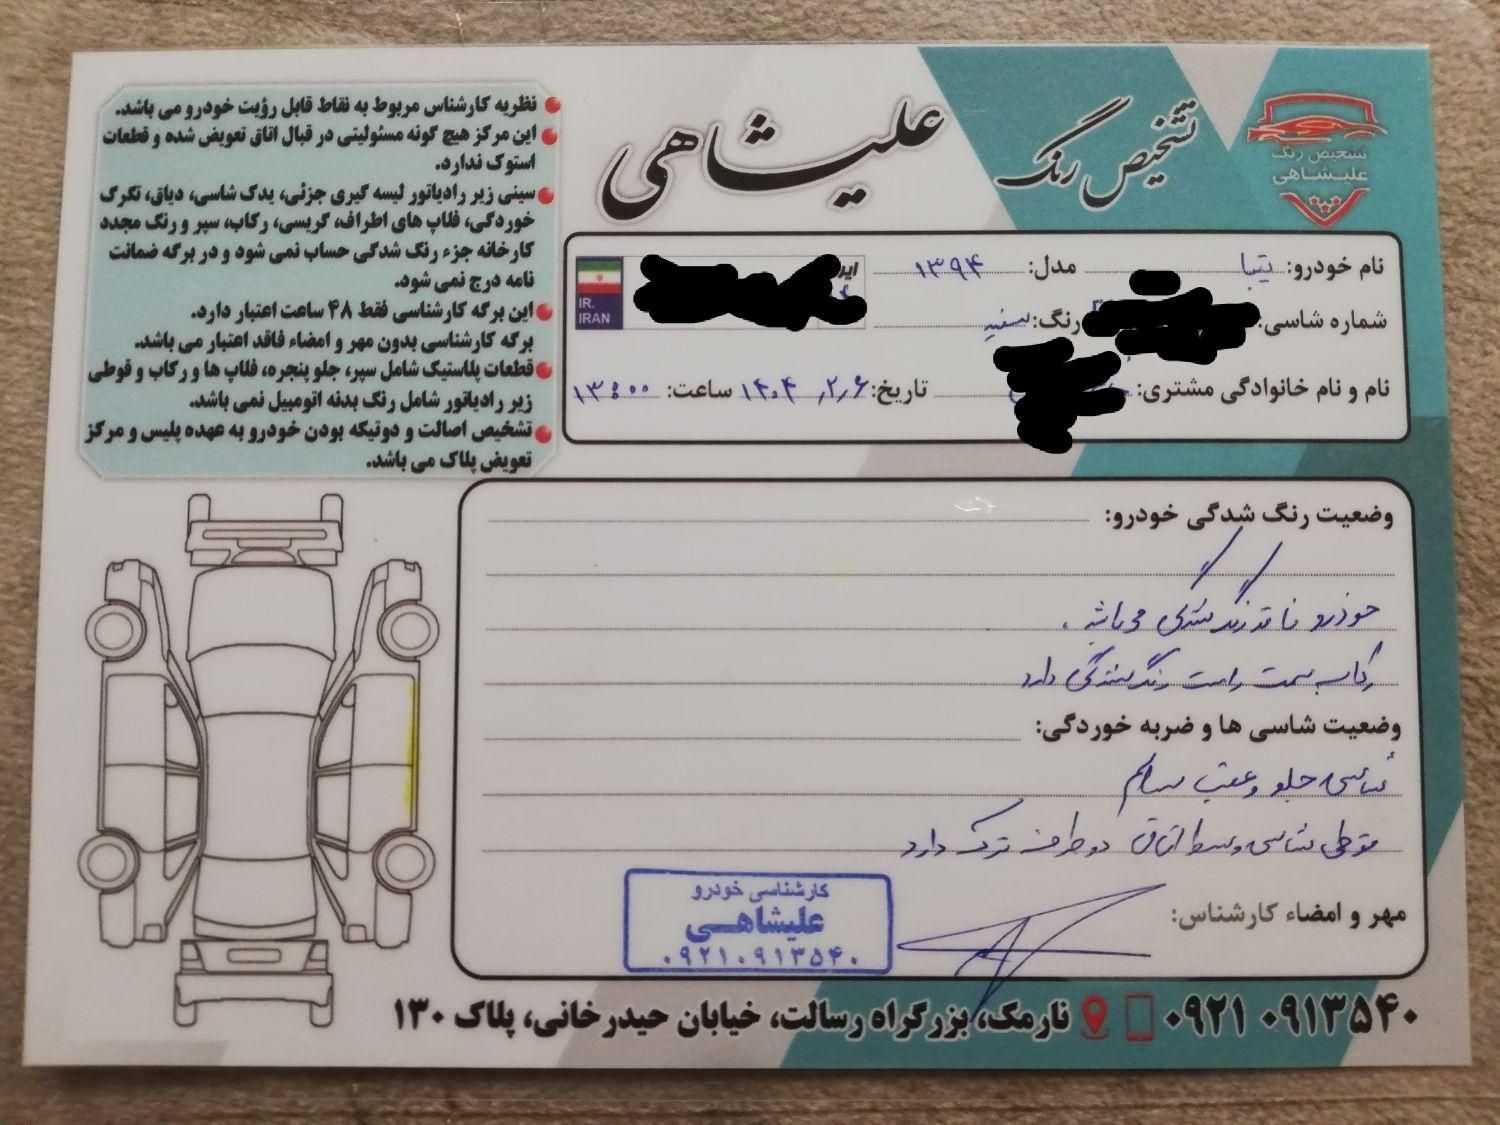 تشخیص رنگ
علیشاهی
تشخیص رنگ
علیشاهی
نظریه کارشناس مربوط به نقاط قابل رؤیت خودرو می باشد.
این مرکز هیچ گونه مسئولیتی در قبال اتاق تعویض شده و قطعات
استوک ندارد.
سینی زیر رادیاتور لیسه گیری جزئی، یدک شاسی، دیاق، تگرگ
خوردگی، فلاپ های اطراف، گریسی، رکاب، سپر و رنگ مجدد
کارخانه جزء رنگ شدگی حساب نمی شود و در برگه ضمانت
نامه درج نمی شود.
این برگه کارشناسی فقط ۴۸ ساعت اعتبار دارد.
برگه کارشناسی بدون مهر و امضاء فاقد اعتبار می باشد.
قطعات پلاستیک شامل سپر، جلو پنجره، فلاپ ها و رکاب و قوطی
زیر رادیاتور شامل رنگ بدنه اتومبیل نمی باشد.
تشخیص اصالت و دوتیکه بودن خودرو به عهده پلیس و مرکز
تعویض پلاک می باشد.
نام خودرو: تیبا مدل: ۱۳۹۴
I.R.
IRAN
شماره شاسی: رنگ: سفید
نام و نام خانوادگی مشتری: تاریخ: ۱۴۰۴,۲,۶ ساعت: ۱۳:۰۰
وضعیت رنگ شدگی خودرو:
خودرو فاقد رنگ شدگی می باشد.
رکاب سمت راست رنگ شدگی دارد
وضعیت شاسی ها و ضربه خوردگی:
شاسی جلو و عقب سالم
قوطی شاسی وسط اتاق دو طرف ترک دارد
مهر و امضاء کارشناس:
کارشناسی خودرو
علیشاهی
۰۹۲۱۰۹۱۳۵۴۰
۰۹۲۱ ۰۹۱۳۵۴۰ نارمک، بزرگراه رسالت، خیابان حیدرخانی، پلاک ۱۳۰